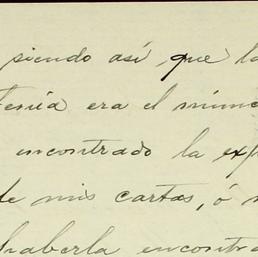 siendo así que la
tenía era el núme
encontrado la exp
de mis cartas, ó
haberla encontra